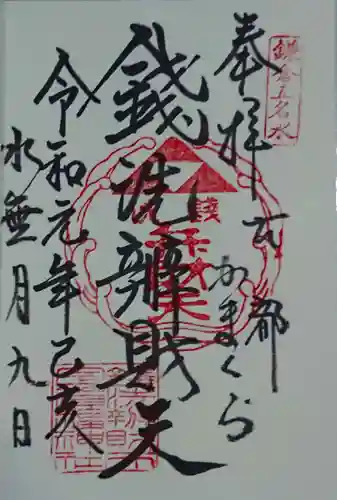 鎌倉五名水
奉拝
古都
かまくら
銭洗辨財天
令和元年己亥
水無月九日